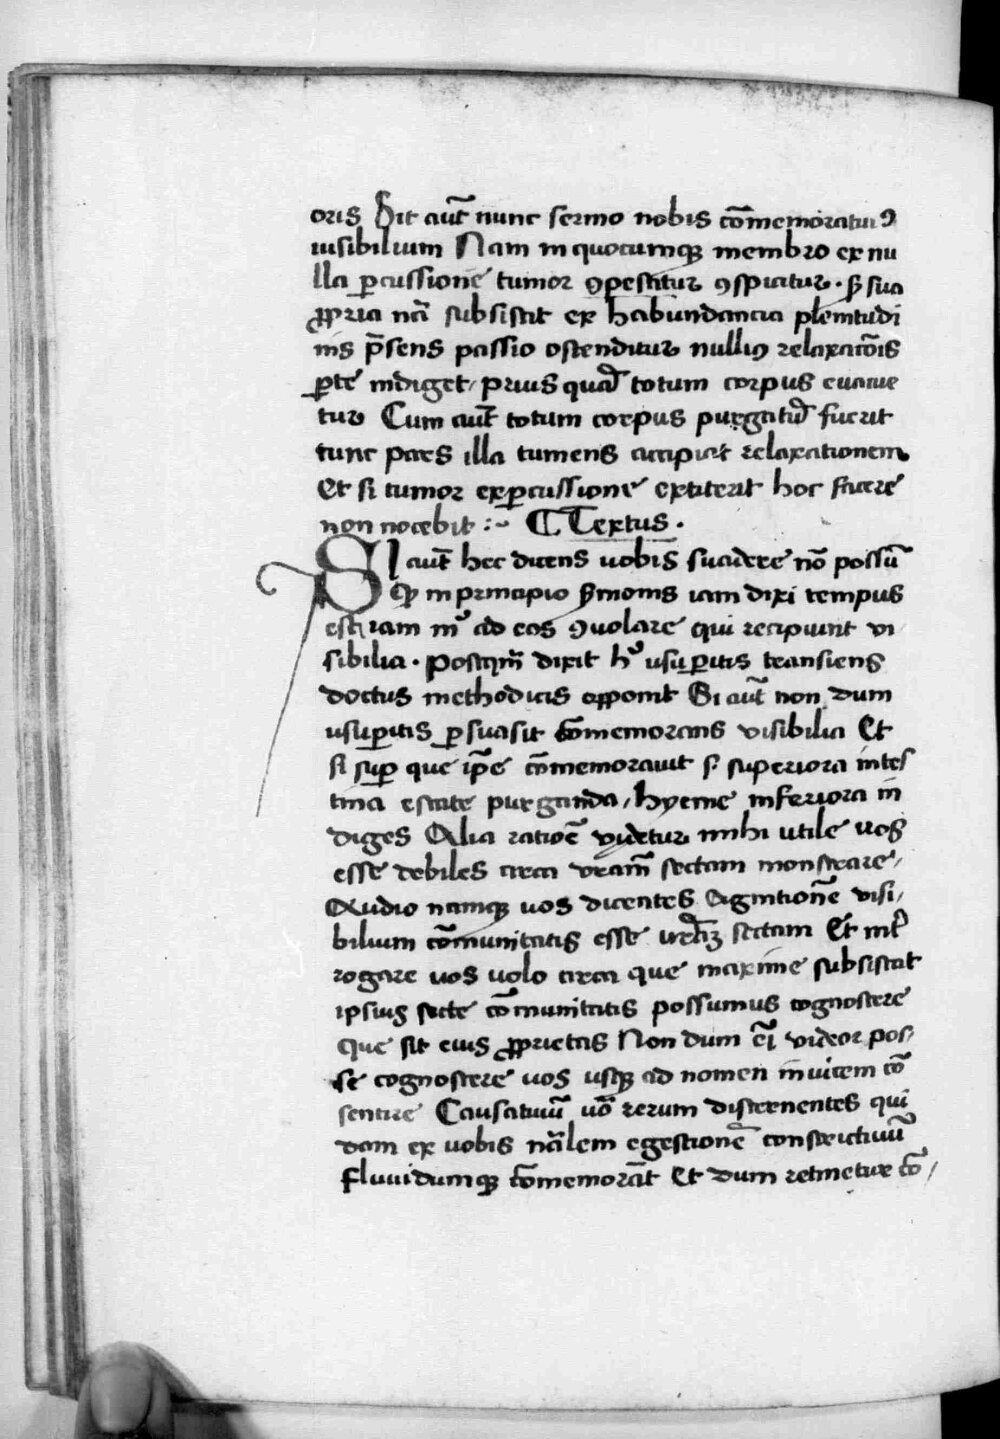 oris Sit aut̃ nunc sermo nobis cõmemoratiuꝯ
uisibilium Nam in quocumqꝫ membro ex nu
lla ꝑcussione tumor ꝯpestitur ꝯspicitur · sꝫ sua
ꝓpria nã subsistit ex habundancia plenitudi
nis p̃sens passio ostenditur nulliꝯ relaxatõis
ꝑte indiget / prius quã totum corpus euacue
tur Cum aut̃ totum corpus purgatũ fuerit
tunc pars illa tumens accipiat relaxationem
Et si tumor ex ꝑcussione extiterit hoc facere
non nocebit :~ ¶ Textus ·
SI aut̃ hec dicens uobis suadere nõ possũ
qꝫ in principio s̃monis iam dixi tempus
est iam ad eos ꝯuolare qui recipiunt vi
sibilia · Postqm̃ dixit usuꝑitis transiens
doctus methodicis opponit Si aut̃ non dum
usuꝑitis ꝑsuasit cõmemorans visibilia Et
si suꝑ que ip̃e cõmemorauit s· superiora intes
tina estate purganda / hyeme inferiora in
diges Alia ratiõe videtur mihi utile uos
esse debiles circa vr̃am sectam monstrare /
Audio namqꝫ uos dicentes cognitionẽ visi /
bilium cõmunitatis esse sectam Et int̃
rogare uos uolo circa que maxime subsistat
ipsius secte cõmunitatis possumus cognoscere
que sit eius ꝓprietas Non dum em̃ videor pos /
se cognoscere uos usqꝫ ad nomen inuicem cõ
sentire Causatiuũ uõ rerum discernentes qui
dam ex uobis nãlem egestionẽ constrictiuũ
fluuidumqꝫ cõmemorãt Et dum retinetur cõ /